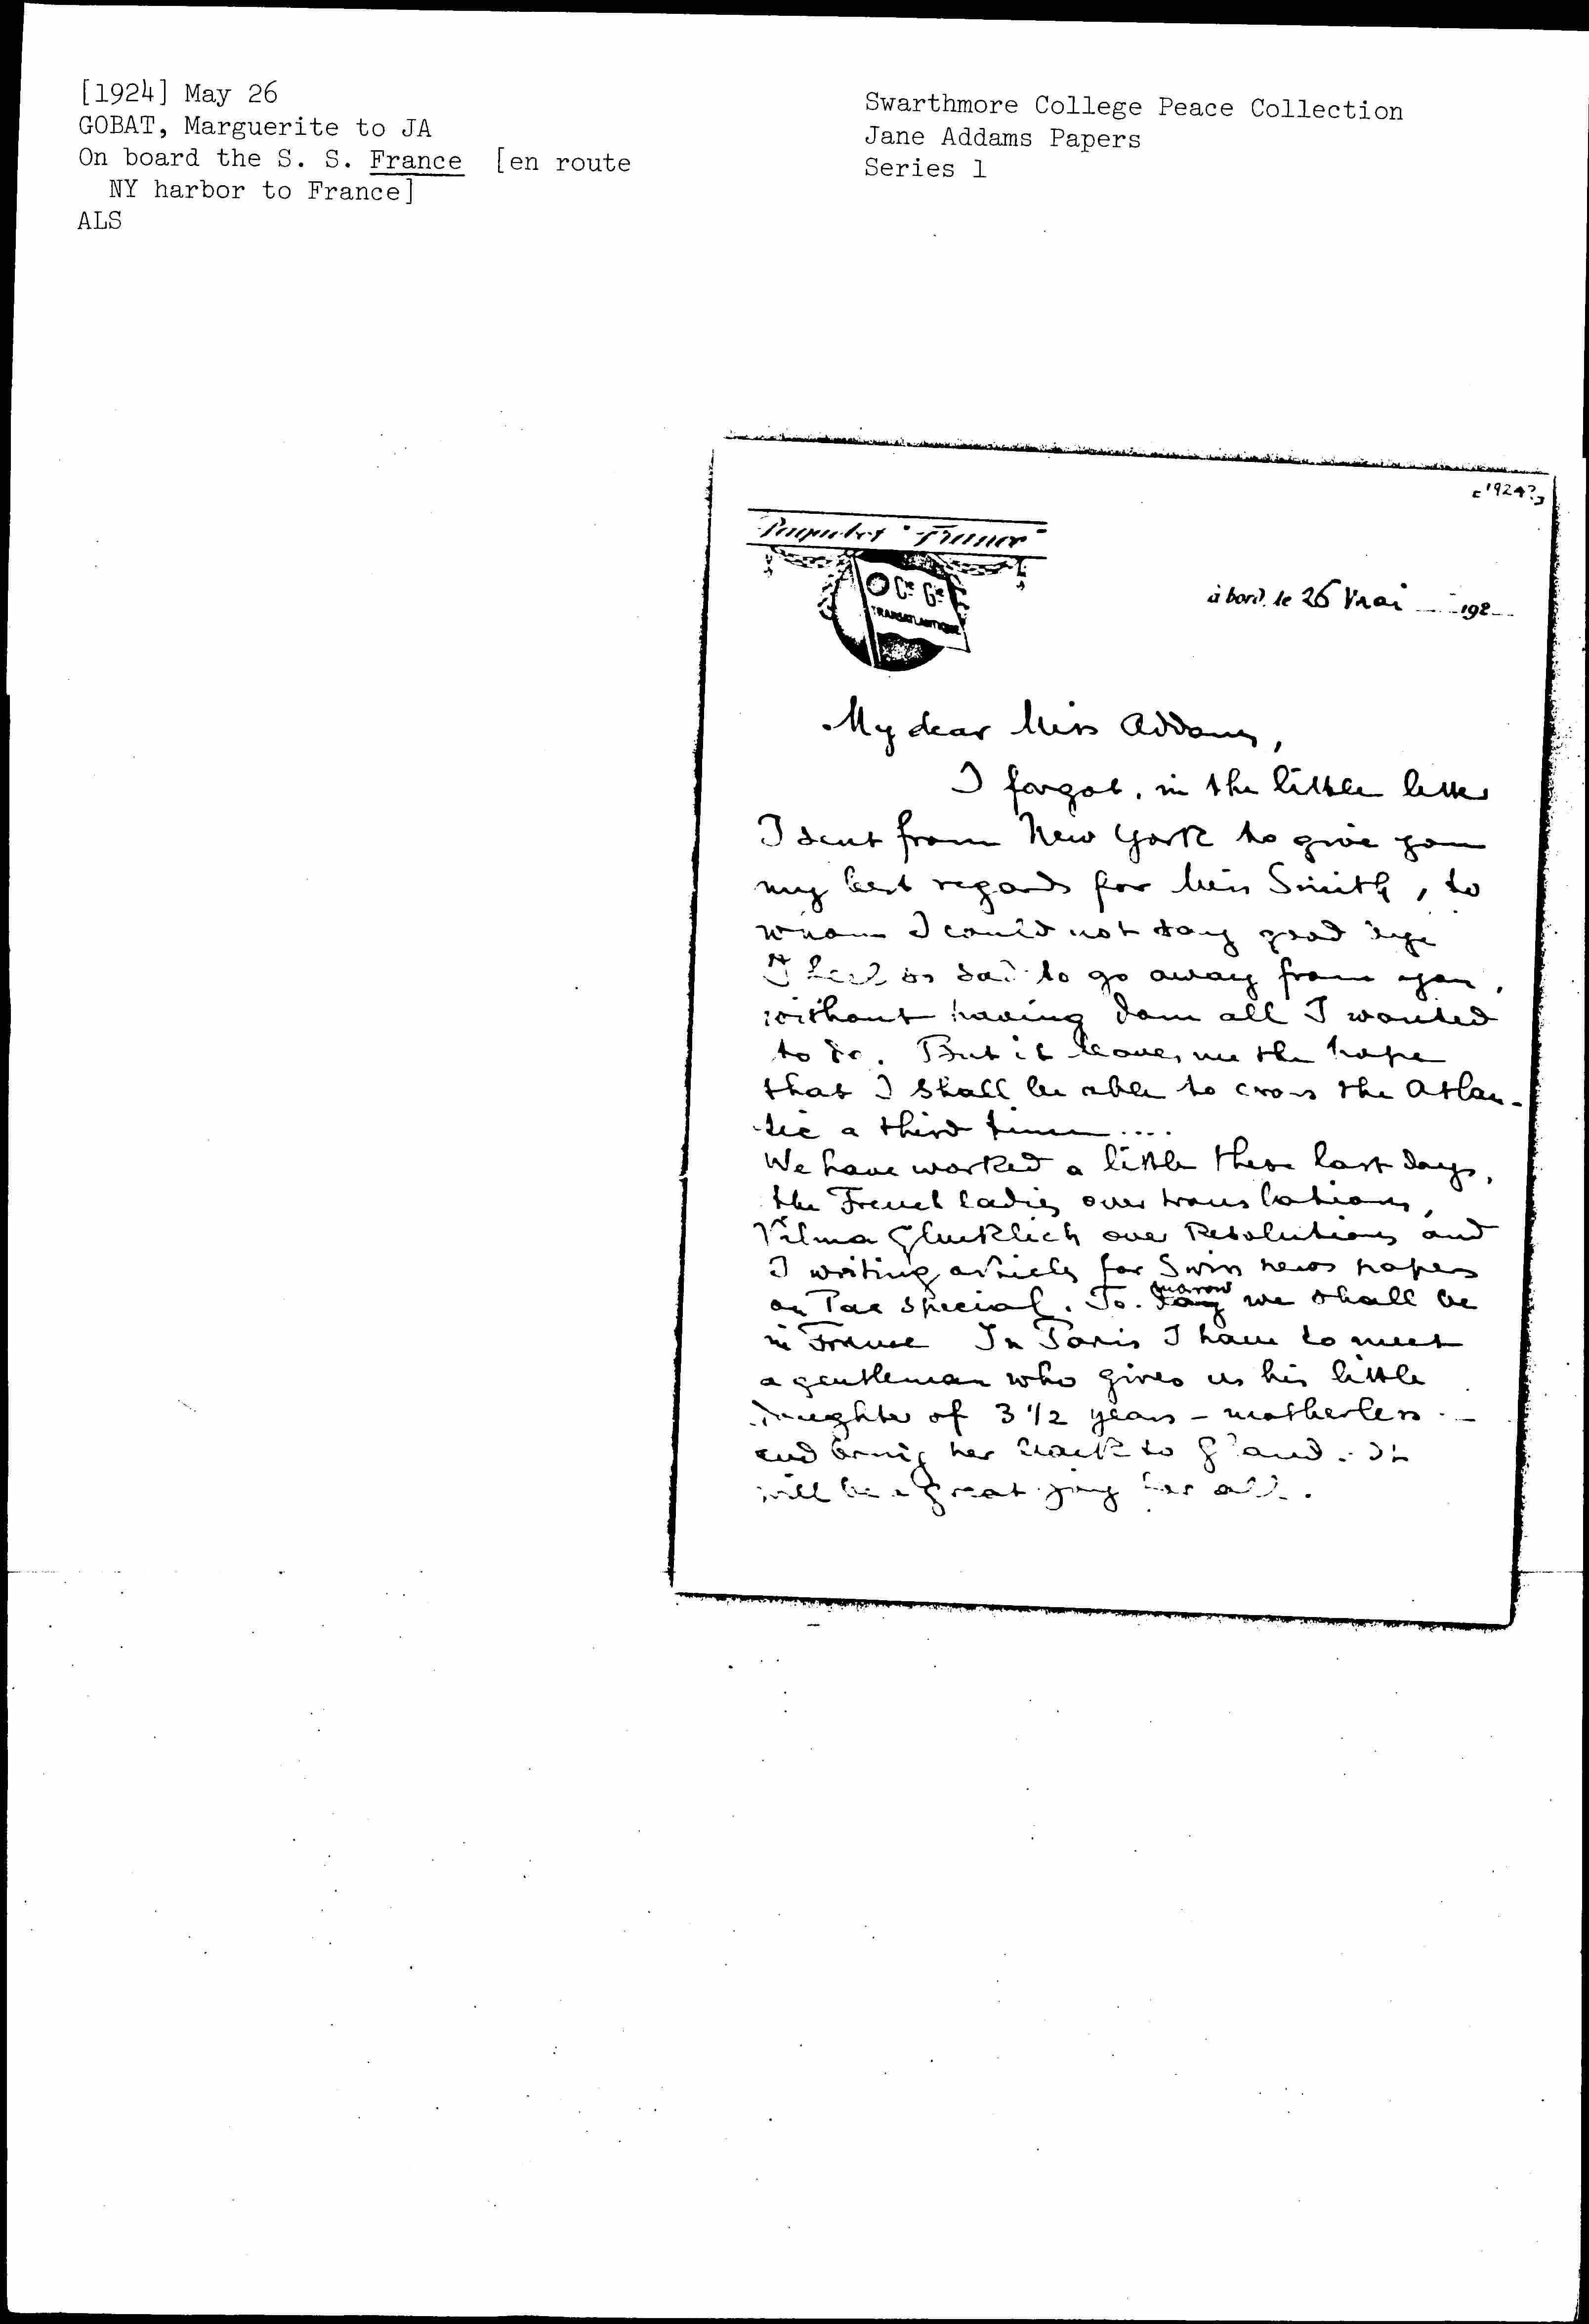 [1924] May 26
GOBAT, Marguerite to JA
On board the S. S. France [en route
NY harbor to France]
ALS
Swarthmore College Peace Collection
Jane Addams Papers
Series 1
[1924?]
Paquebot "France"
Cie Gle
TRANSATLANTIQUE
à bord, le 26 Mai 192
My dear Miss Addams,
I forgot, in the little letter
I sent from New York to give you
my best regards for Miss Smith, to
whom I could not say good bye
I feel so sad to go away from you,
without having done all I wanted
to do. But it leaves me the hope
that I shall be able to cross the Atlan-
tic a third time....
We have worked a little these last days,
the French ladies over translations,
Vilma Glucklich over Resolutions and
I writing articles for Swiss news papers
on Pax special. To-day morrow we shall be
in France In Paris I have to meet
a gentleman who gives us his little
daughter of 3 1/2 years - motherless -
and bring her back to Gland. It
will be a great joy for all.